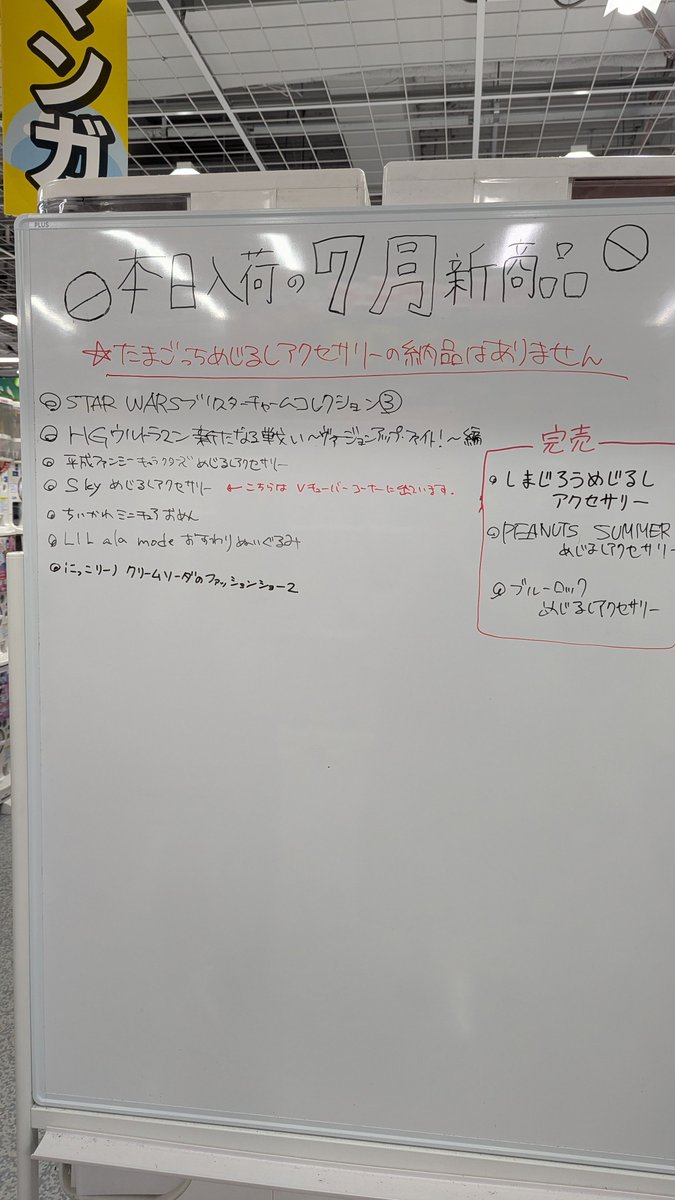 マンガ
PLUS
本日入荷の7月新商品
☆たまごっちめじるしアクセサリーの納品はありません
STAR WARSブリスターチャームコレクション③
HGウルトラマン 新たなる戦い〜ヴァージョンアップ・ファイト!〜編
平成ファンシーキャラクターズ めじるしアクセサリー
Sky めじるしアクセサリー ←こちらは Vチューバーコーナーに出ています.
ちいかわ ミニチュア おめん
LIL ala mode おすわり ぬいぐるみ
にっこリーノ クリームソーダのファッションショー2
完売
しまじろうめじるし
アクセサリー
PEANUTS SUMMER
めじるしアクセサリー
ブルーロック
めじるしアクセサリー